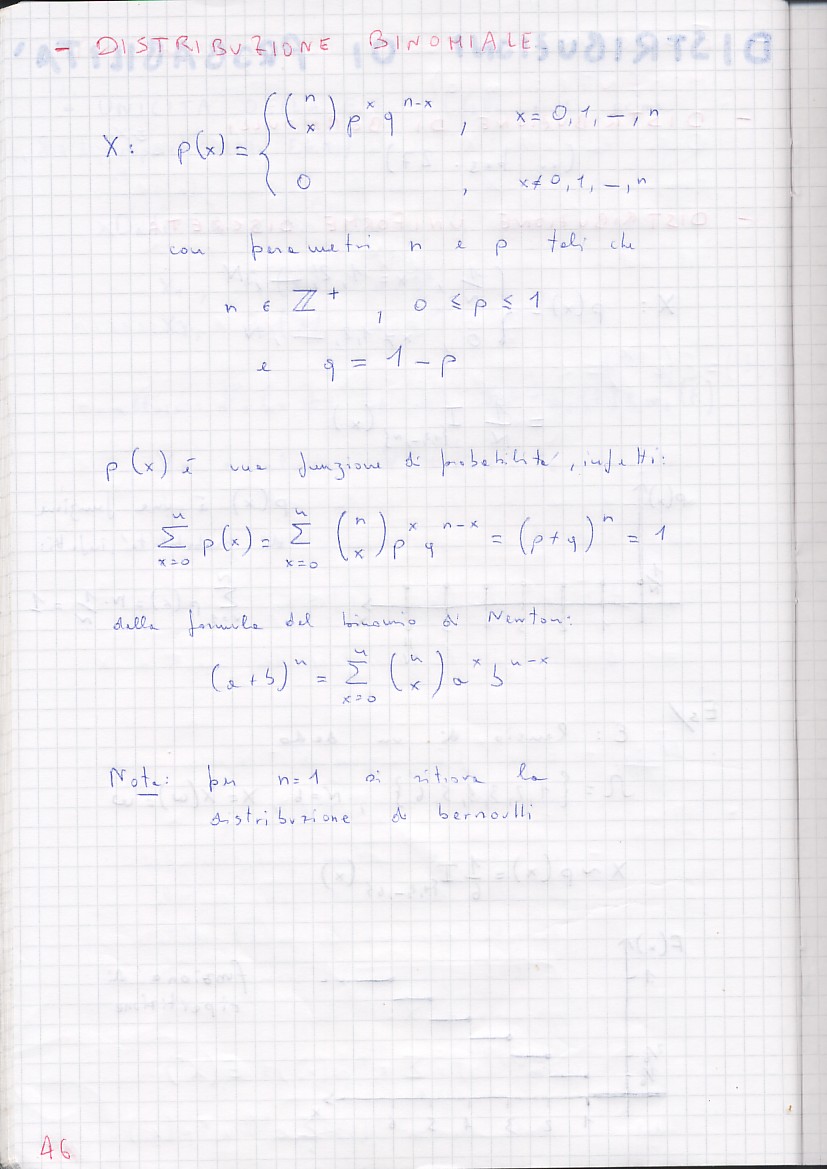 - DISTRIBUZIONE BINOMIALE.
X: p(x) = { (n x) p^x q^{n-x} , x = 0, 1, -, n
0 , x ≠ 0, 1, -, n
con parametri n e p tali che
n ϵ ℤ^+ , 0 ≤ p ≤ 1
e q = 1 - p
p(x) è una funzione di probabilità, infatti:
∑_{x=0}^{n} p(x) = ∑_{x=0}^{n} (n x) p^x q^{n-x} = (p+q)^n = 1
dalla formula del binomio di Newton:
(a+b)^n = ∑_{x=0}^{n} (n x) a^x b^{n-x}
Nota: per n=1 si ritrova la
distribuzione di bernoulli
46